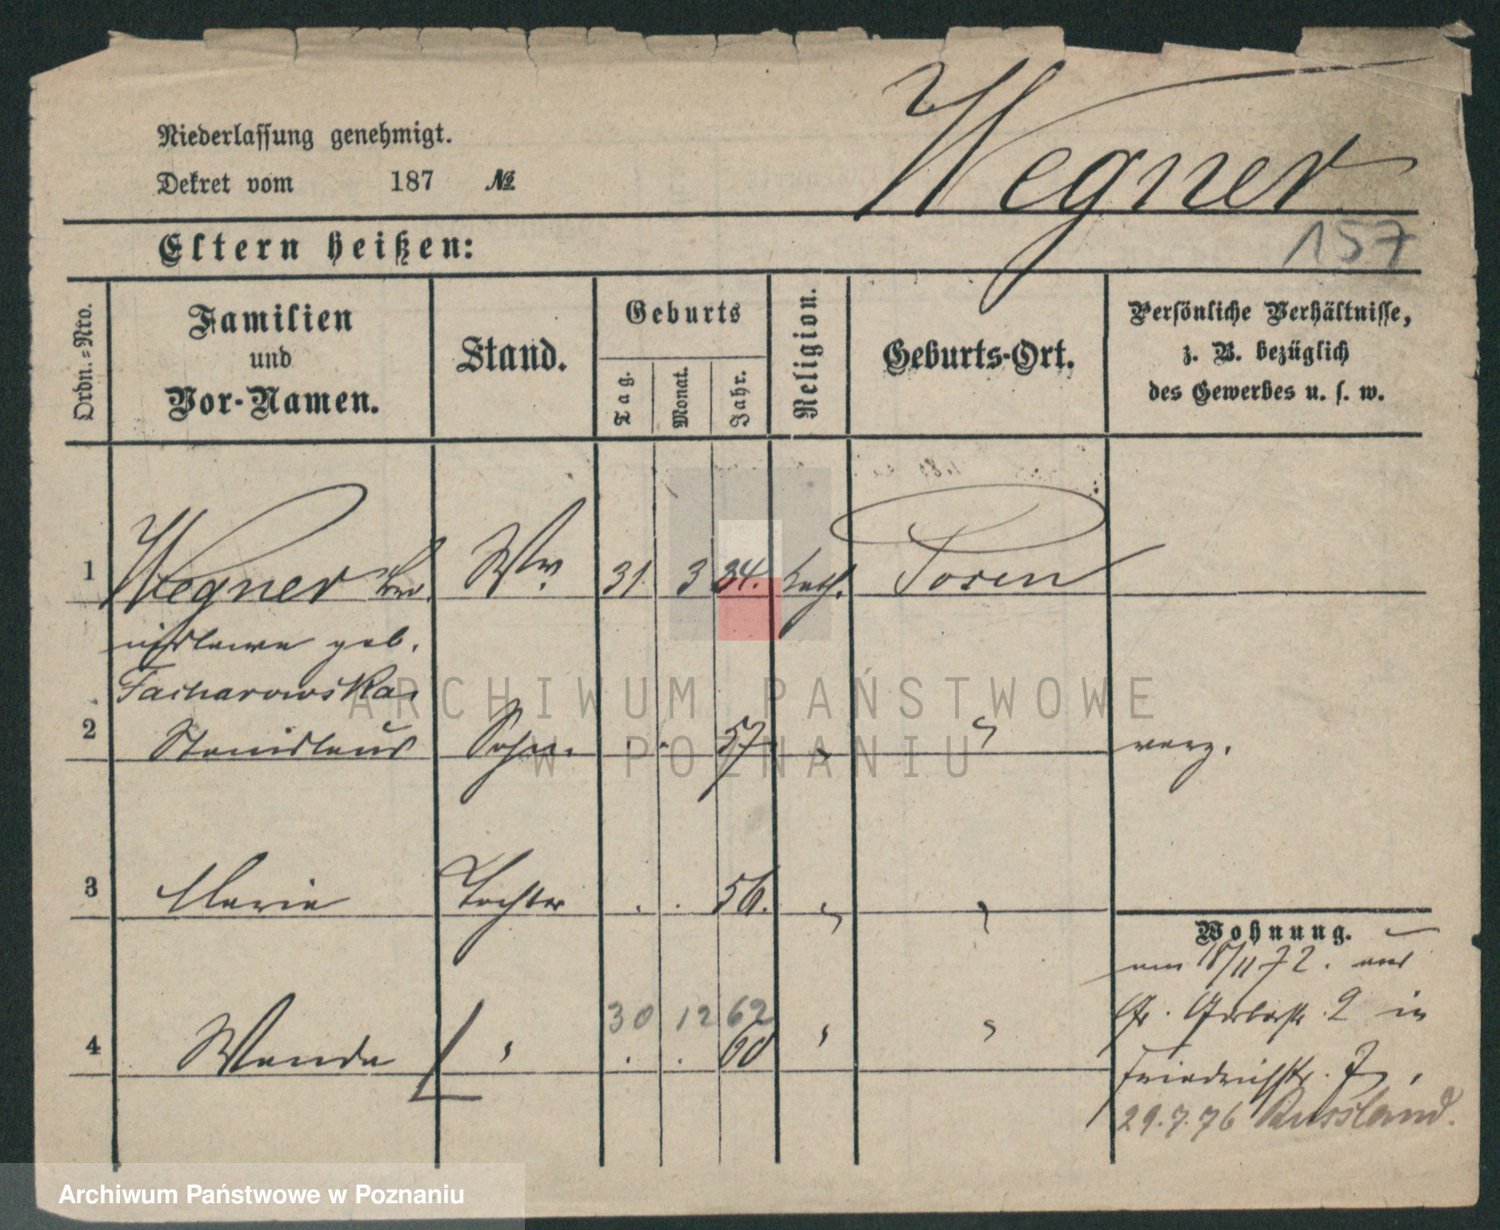 Wegner
Niederlassung genehmigt.
Dekret vom 187 №
157
Eltern heißen:
Ordn.=Nro.
Familien
und
Vor-Namen.
Stand.
Geburts
Tag.
Monat.
Jahr.
Religion.
Geburts-Ort.
Persönliche Verhältnisse,
z. B. bezüglich
des Gewerbes u. s. w.
1 Wegner Bro Ww. 31 3 34. kath. Posen
nislawa geb.
Tacharowska.
2 Stanislaus Sohn. . . 57 " " verz.
3 Marie Tochter . . 56. " "
Wohnung.
am 18/11 72. aus
30 12 62
Gr. Gerberstr. 2 in
4 Wanda " . . 60 " "
Friedrichstr. 7.
29.7.76 Russland.
ARCHIWUM PAŃSTWOWE
W POZNANIU
Archiwum Państwowe w Poznaniu